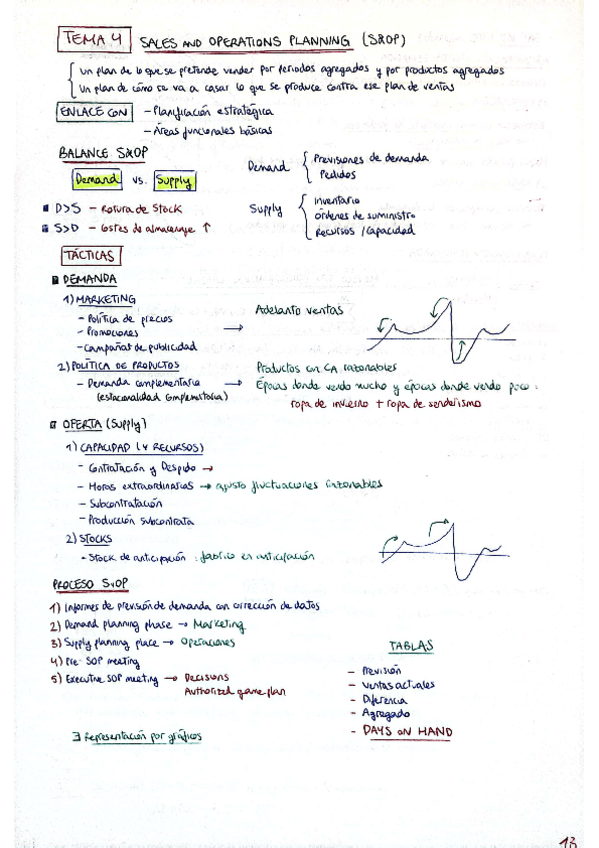 TEMA 4 SALES AND OPERATIONS PLANNING (S&OP)
Un plan de lo que se pretende vender por periodos agregados y por productos agregados
Un plan de cómo se va a casar lo que se produce contra ese plan de ventas
ENLACE CON - Planificación estratégica
- Áreas funcionales básicas
BALANCE S&OP
Demand vs. Supply
Demand { Previsiones de demanda
Pedidos
D>S - Rotura de Stock
S>D - Costes de almacenaje ↑
Supply { Inventario
órdenes de suministro
Recursos / Capacidad
TÁCTICAS
DEMANDA
1) MARKETING
- Política de precios
- Promociones
- Campañas de publicidad
→ Adelanto ventas
2) POLÍTICA DE PRODUCTOS
- Demanda complementaria
(estacionalidad complementaria)
→ Productos con CA razonables
Épocas donde vendo mucho y épocas donde vendo poco:
ropa de invierno + ropa de senderismo
OFERTA (Supply)
1) CAPACIDAD (Y RECURSOS)
- Contratación y Despido →
- Horas extraordinarias → ajusto fluctuaciones razonables
- Subcontratación
- Producción subcontrata
2) STOCKS
- Stock de anticipación : fabrico en anticipación
PROCESO S&OP
1) Informes de previsión de demanda con corrección de datos
2) Demand planning phase → Marketing
3) Supply planning place → Operaciones
4) Pre-SOP meeting
5) Executive SOP meeting → Decisions
Authorized game plan
∃ Representación por gráficos
TABLAS
- Previsión
- Ventas actuales
- Diferencia
- Agregado
- DAYS ON HAND
13